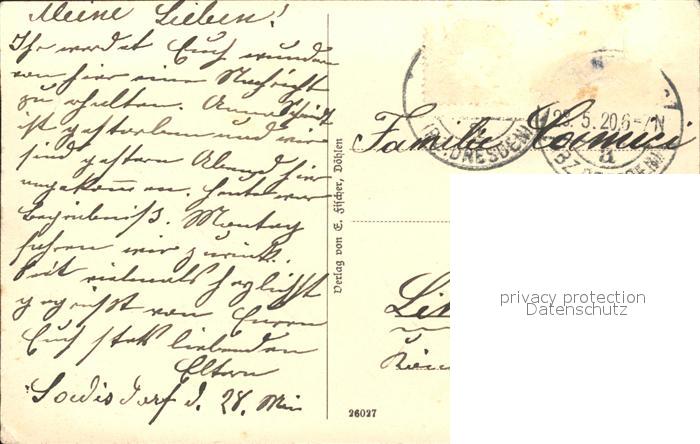 Meine Lieben!
Ihr werdet Euch wundern
von hier eine Nachricht
zu erhalten. Anna
ist gestorben und wir
sind gestern Abend hier
angekommen. Heute war
Begräbniß. Montag
fahren wir zurück.
Seit vielmals herzlichst
gegrüßt von Euren
Euch stets liebenden
Eltern
d. 28. Mai
Verlag von E. Fischer, Döhlen
26027
(BZ.DRESDEN)
29.5.20.6-7N
a
Familie
privacy protection
Datenschutz